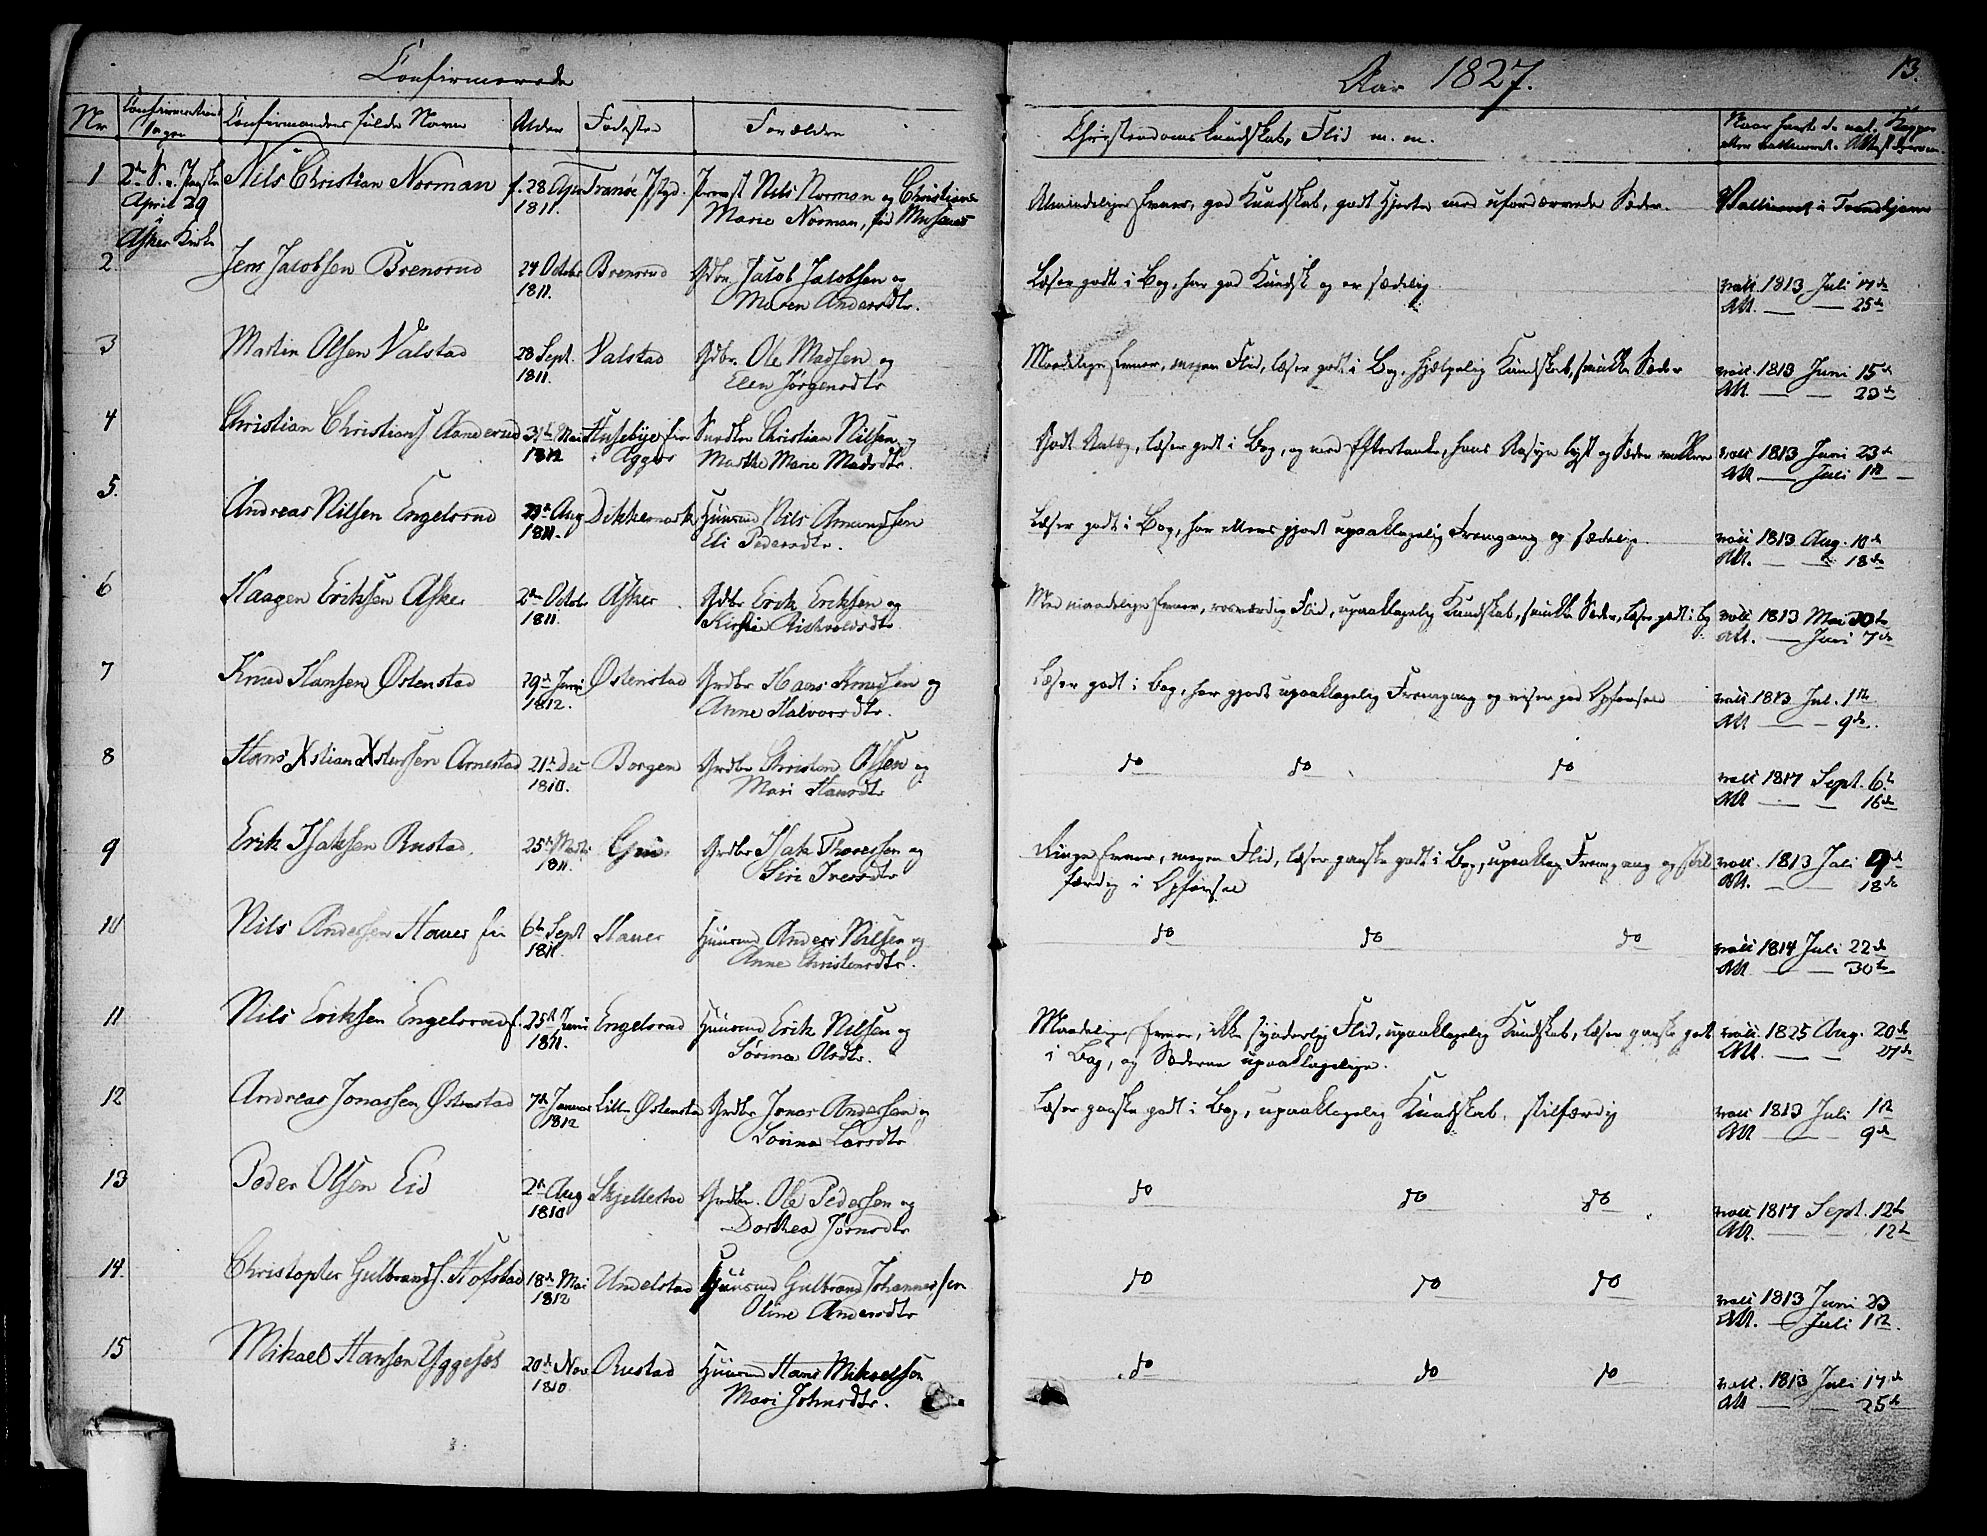 Confirmerede
Aar 1827.
13.
Nr
Confirmandens fulde Navn
Alder
Fødested
Forældre
Christendoms Kundskab, Flid m. m.
1
2den S. e. Paaske
April 29
Asker Kirke
Nils Christian Norman
f. 28 Apr
1811.
Tranøe
Provst Nils Norman og Christiane
Marie Norman, fød
Almindelige Evner, god Kundskab, godt Hjerte med ufordærvede Sæder.
Vaccineret i Trondhjem
2.
Jens Jacobsen Brensrud
24 Octobr
1811.
Brensrud
Gdbr. Jacob Jacobsen og
Maren Andersdtr.
Læser godt i Bog, har god Kundsk og er sædelig
vacc. 1813 Juli 17de
Att. — — 25de
3
Martin Olsen Valstad
28 Sept.
1811.
Valstad
Gdbr. Ole Madsen og
Elen Jørgensdtr
Maadelige Evner, megen Flid, læser godt i Bog, hjælpelig Kundskab, smukke Sæder
vacc. 1813 Juni 15de
Att. — — 23de
4
Christian Christians Aanerud
31te Mai
1812
Husebye
i Agger
Christian Nilsen og
Marthe Marie Madsdtr.
vacc 1813 Juni 23de
Att — Juli 1ste
5.
Andreas Nilsen Engelsrud
Aug
1811.
Dikkemark
Huusmd Nils Amundsen
Eli Pedersdtr.
Læser godt i Bog, har ellers gjort upaaklagelig Fremgang og sædelig.
vacc 1813 Aug. 10de
Att. — — 18de
6
Haagen Eriksen Asker
2den Octobr
1811.
Asker
Gdbr Erik Eriksen og
Kirstie
Med maadelige Evner, rosværdig Flid, upaaklagelig Kundskab, smukke Sæder, læser godt i Bog
vacc 1813 Mai 30te
Att. — Juni 7de
7
Knud Hansen Østenstad
29de Juni
1812.
Østenstad
Grdbr Hans Knudsen og
Anne Halvorsdtr.
Læser godt i Bog, har gjort upaaklagelig Fremgang og viser god Opførsel
vacc 1813 Jul. 1ste
Att — — 9de.
8
Hans Xstian Xstensen Arnestad
21de Dec
1810.
Borgen
Grdbr Christen Olsen og
Mari Hansdtr
do do do
vacc 1817 Sept. 6te
Att — — 16de
9
Erik Isaksen Rustad.
25de Marts
1811.
Grdbr Isak Thoressen og
Siri Iversdtr
Ringe Evner, megen Flid, læser ganske godt i Bog, upaaklag. Fremgang og stil-
færdig i Opførsel
vacc. 1813 Juli 9de
Att. — — 18de
10
Nils Andersen Hauer
6te Sept
1811.
Hauer
Huusmd Anders Nilsen og
Anne Christensdtr.
do do do
vacc 1814 Juli 22de
Att — — 30te
11
Nils Eriksen Engelsrud
f. 25de Juni
1811.
Engelsrud
Huusmd Erik Nilsen og
Sørina Olsdtr.
Maadelige Evner, ikke synderlig Flid, upaaklagelig Kundskab, læser ganske godt
i Bog, og Sæderne upaaklagelige.
vacc 1825 Aug. 20de
Att. — — 27de
12
Andreas Jonassen Østenstad
7de Januar
1812
Lille Østenstad
Grdbr Jonas Anderssen og
Sorina Larsdtr
Læser ganske godt i Bog, upaaklagelig Kundskab, stilfærdig
vacc 1813 Juli 1ste
Att — — 9de
13
Peder Olsen Eid
2den Aug
1810
Skjellestad
Grdbr. Ole Pedersen og
Dorthea Jørnsdtr
do do do
vacc 1817 Sept. 12te
Att. — — 12te
14.
Christopher Gulbrands. Hofstad
18de Mai
1812
Undelstad
Huusmd Gulbrand Johannessen
Oline Andersdtr
do do do
vacc 1813 Juni 23
Att. — Juli 1ste.
15
Mikael Hansen Yggeset
20de Nov
1810.
Rustad
Huusmd Hans Mikaelsen
Mari Johnsdtr.
do do do
vacc. 1813 Juli 17de
Att — — 25de